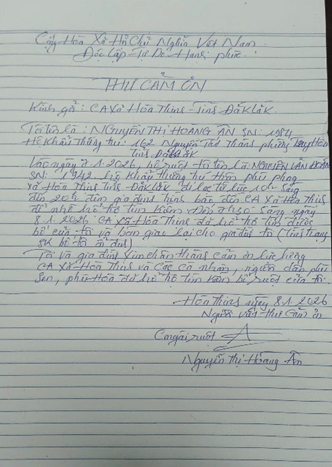 Cộng Hòa Xã Hội Chủ Nghĩa Việt Nam
Độc Lập - Tự Do - Hạnh phúc
THƯ CẢM ƠN
Kính gửi: CA xã Hòa Thịnh - Tỉnh Đắk Lắk
Tôi tên là: NGUYỄN THỊ HOÀNG ÂN SN: 1984
Hộ khẩu thường trú: 162 Nguyễn Tất Thành phường
tỉnh Đắk Lắk
ngày 7.1.2026 bố ruột tôi tên là NGUYỄN
SN: 1942 hộ khẩu thường trú thôn phú phong
xã Hòa Thịnh tỉnh Đắk Lắk đi lạc từ lúc 10h sáng
đến 20h đến gia đình trình báo đến CA xã Hòa Thịnh
để nhờ hỗ trợ tìm kiếm. Đến sáng ngày
8.1.2026 CA xã Hòa Thịnh đã hỗ trợ tìm được
bố của tôi và bàn giao lại cho gia đình tôi (tình trạng
SK bố tôi ổn định)
Tôi và gia đình xin chân thành cảm ơn lực lượng
CA xã Hòa Thịnh và các cá nhân, người dân phú
sen, phú Hòa đã hỗ trợ tìm kiếm bố ruột của tôi.
Hòa Thịnh ngày 8.1.2026
Người viết thư cảm ơn
Con gái ruột
Nguyễn Thị Hoàng Ân